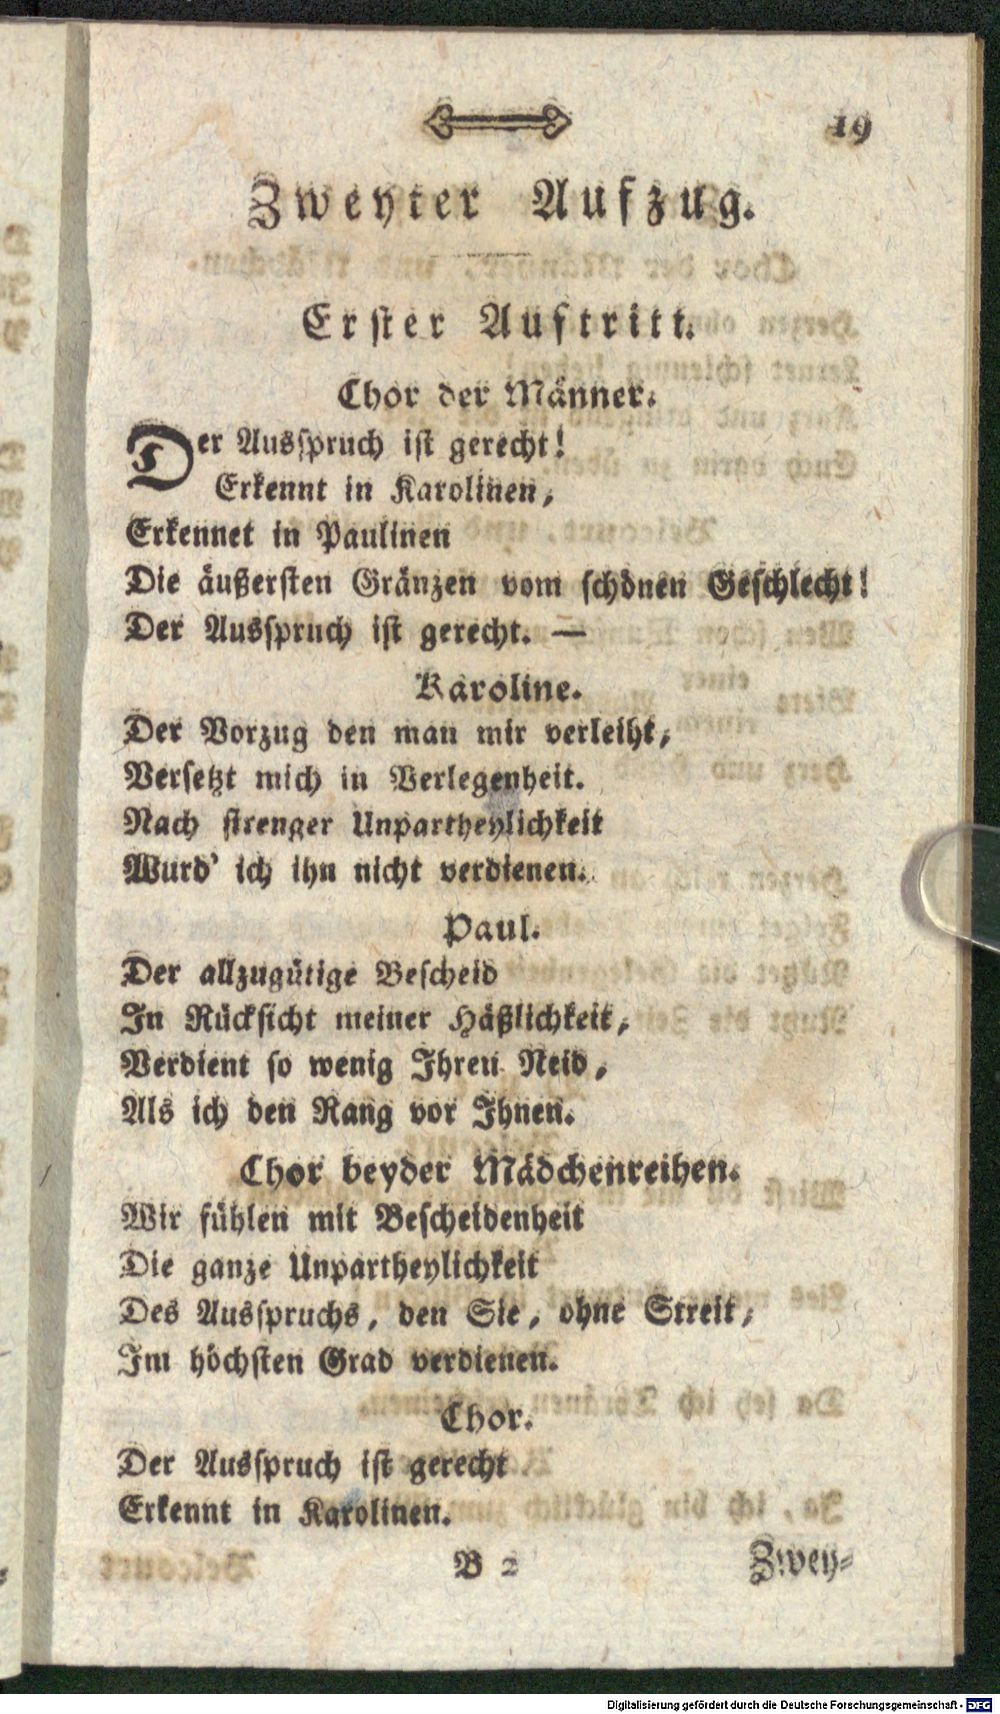 19
Zweyter Aufzug.
Erster Auftritt.
Chor der Männer.
Der Ausspruch ist gerecht!
Erkennt in Karolinen,
Erkennet in Paulinen
Die äußersten Gränzen vom schönen Geschlecht!
Der Ausspruch ist gerecht. —
Karoline.
Der Vorzug den man mir verleiht,
Versetzt mich in Verlegenheit.
Nach strenger Unpartheylichkeit
Wurd' ich ihn nicht verdienen.
Paul.
Der allzugütige Bescheid
In Rücksicht meiner Häßlichkeit,
Verdient so wenig Ihren Neid,
Als ich den Rang vor Ihnen.
Chor beyder Mädchenreihen.
Wir fühlen mit Bescheidenheit
Die ganze Unpartheylichkeit
Des Ausspruchs, den Sie, ohne Streit,
Im höchsten Grad verdienen.
Chor.
Der Ausspruch ist gerecht
Erkennt in Karolinen.
B 2 Zwey-
Digitalisierung gefördert durch die Deutsche Forschungsgemeinschaft - DFG